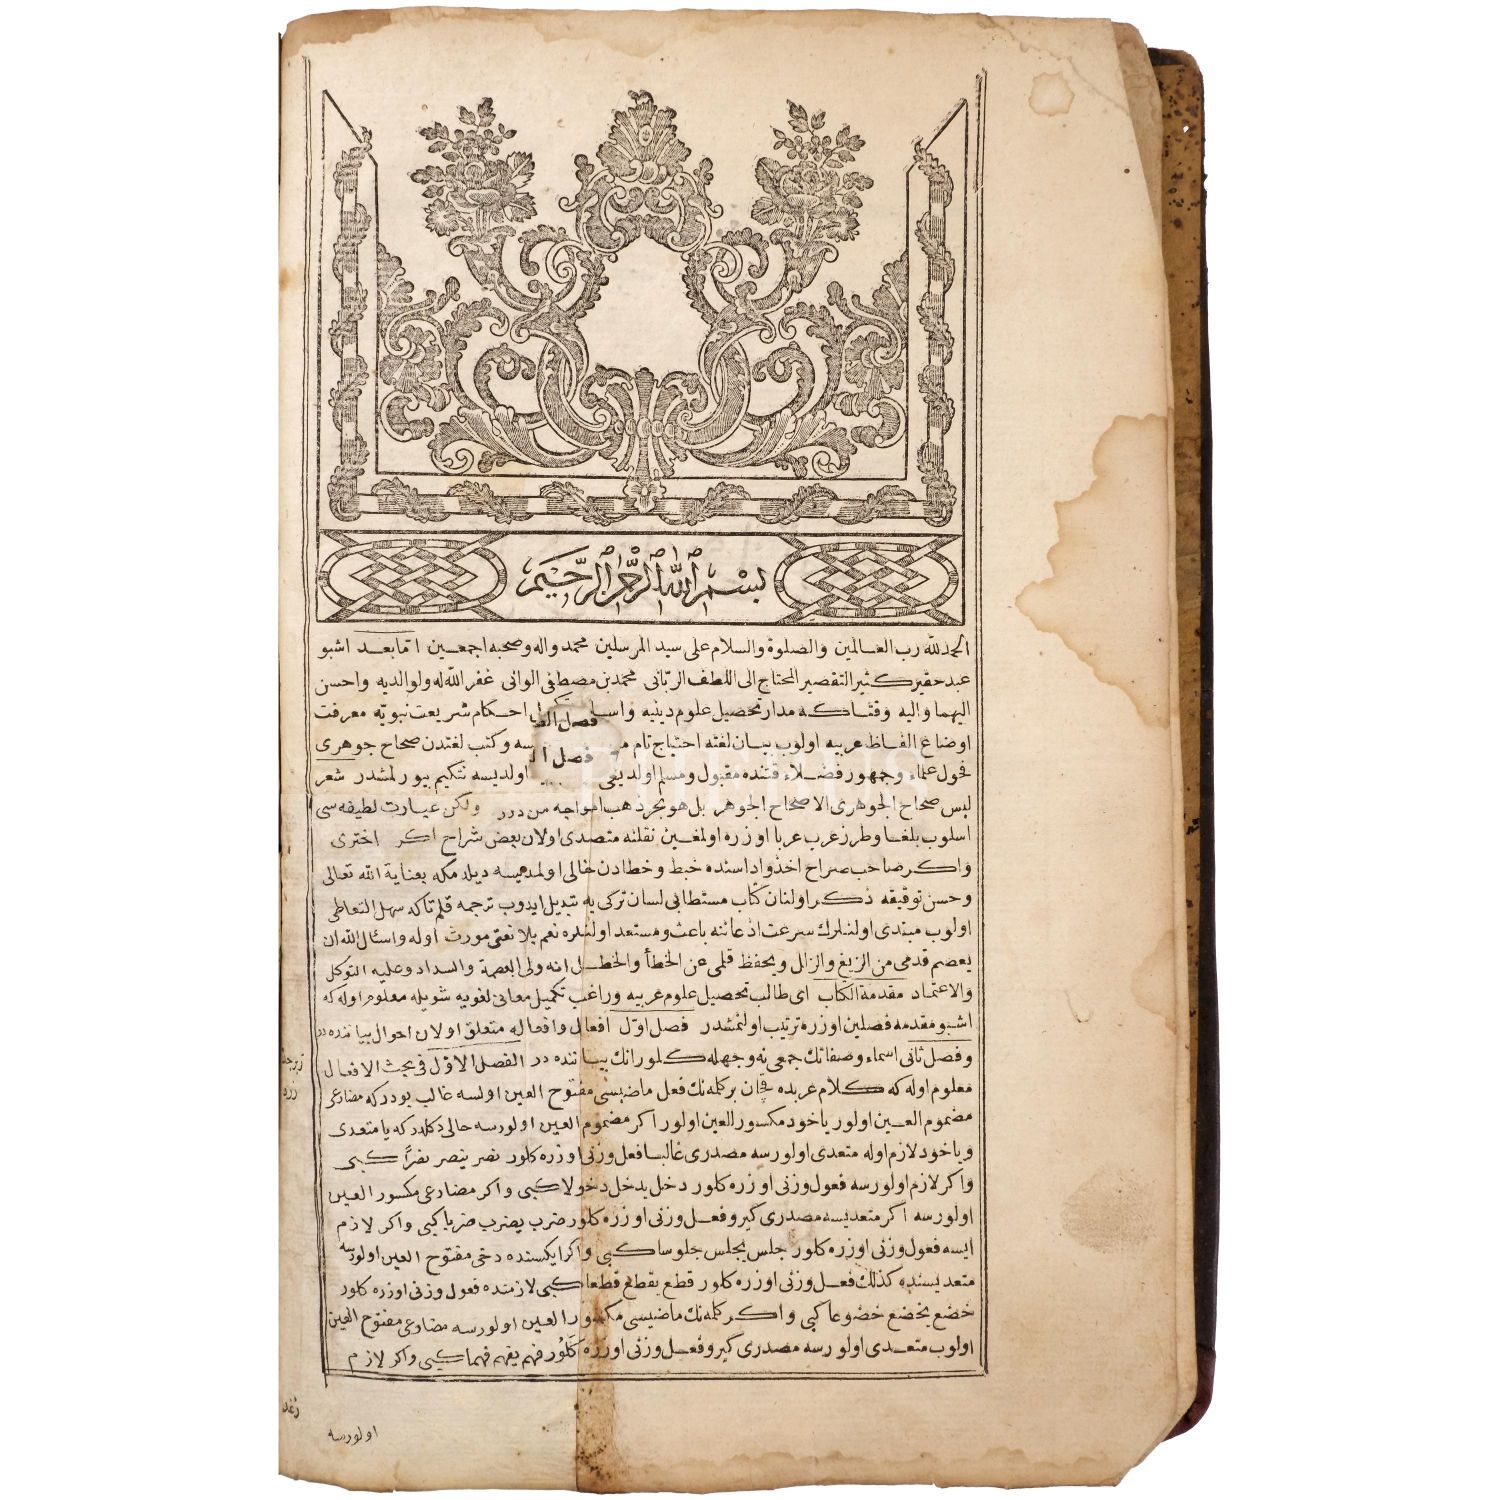 بسم الله الرحمن الرحيم
الحمد لله رب العالمين والصلوة والسلام على سيد المرسلين محمد واله وصحبه اجمعين اما بعد اشبو
عبد حقير كثير التقصير المحتاج الى اللطف الربانى محمد بن مصطفى الوانى غفر الله له ولوالديه واحسن
اليهما واليه وقتاكه مدار تحصيل علوم دينيه واسا احكام شريعت نبويه معرفت
فصل الط
اوضاع الفاظ عربيه اولوب بيان لغته احتياج تام سه وكتب لغتدن صحاح جوهرى
فصل ال
فحول علماء وجمهور فضلاء قتنده مقبول ومسلم اولديغى اولديسه نتكيم بيورلمشدر شعر
ليس صحاح الجوهرى الا صحاح الجوهر بل هو بحر ذهب امواجه من درر ولكن عبارت لطيفه سى
اسلوب بلغا وطرز عرب عربا اوزره اولمغين نقلنه متصدى اولان بعض شراح اكر اخترى
واكر صاحب صراح اخذ واداسنده خبط وخطادن خالى اولمديسه ديلدمكه بعناية الله تعالى
وحسن توفيقه ذكر اولنان كتاب مستطابى لسان تركى يه تبديل ايدوب ترجمه قلم تاكه سهل التعاطى
اولوب مبتدى اولنلرك سرعت اذعاننه باعث ومستعد اولنلره نعم بلا نقمتى مورث اوله واسئل الله ان
يعصم قدمى من الزيغ والزلل ويحفظ قلمى عن الخطأ والخطل انه ولى العصمة والسداد وعليه التوكل
والاعتماد مقدمة الكتاب اى طالب تحصيل علوم عربيه وراغب تكميل معانى لغويه شويله معلوم اوله كه
اشبو مقدمه فصلين اوزره ترتيب اولنمشدر فصل اول افعال وافعاله متعلق اولان احوال بياننده در
وفصل ثانى اسماء وصفاتك جمعى نه وجهله كلور انك بياننده در الفصل الاول فى بحث الافعال
معلوم اوله كه كلام عربده قچان بر كلمه نك فعل ماضيسى مفتوح العين اولسه غالب بودركه مضارعى
مضموم العين اولور ياخود مكسور العين اولور اكر مضموم العين اولورسه حالى دكلدركه يا متعدى
ويا خود لازم اوله متعدى اولورسه مصدرى غالبا فعل وزنى اوزره كلور نصر ينصر نصرا كبى
واكر لازم اولورسه فعول وزنى اوزره كلور دخل يدخل دخولا كبى واكر مضارعى مكسور العين
اولورسه اكر متعديسه مصدرى كيرو فعل وزنى اوزره كلور ضرب يضرب ضربا كبى واكر لازم
ايسه فعول وزنى اوزره كلور جلس يجلس جلوسا كبى واكر ايكسنده دخى مفتوح العين اولورسه
متعديسنده كذلك فعل وزنى اوزره كلور قطع يقطع قطعا كبى لازمنده فعول وزنى اوزره كلور
خضع يخضع خضوعا كبى واكر كلمه نك ماضيسى مكسور العين اولورسه مضارعى مفتوح العين
اولوب متعدى اولورسه مصدرى كيرو فعل وزنى اوزره كلور فهم يفهم فهما كبى واكر لازم
اولورسه